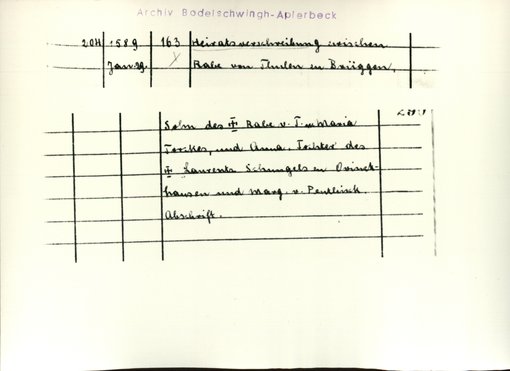 Archiv Bodelschwingh-Aplerbeck
204 1589 163 Heiratsverschreibung zwischen
Jan. 29. Rabe von Thulen zu Brüggen,
Sohn des ‡ Rabe v. T. u. Maria
Torckes, und Anna, Tochter des
‡ Laurentz Schungels zu
hausen und Marg. v.
Abschrift.